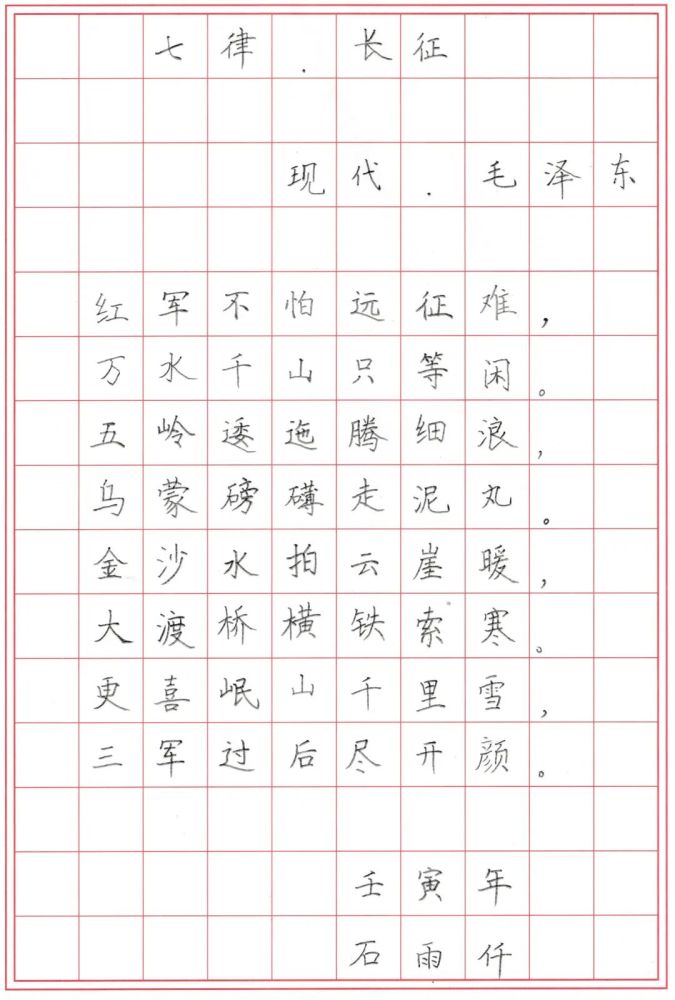 七律.长征
现代.毛泽东
红军不怕远征难，
万水千山只等闲。
五岭逶迤腾细浪，
乌蒙磅礴走泥丸。
金沙水拍云崖暖，
大渡桥横铁索寒。
更喜岷山千里雪，
三军过后尽开颜。
壬寅年
石雨仟